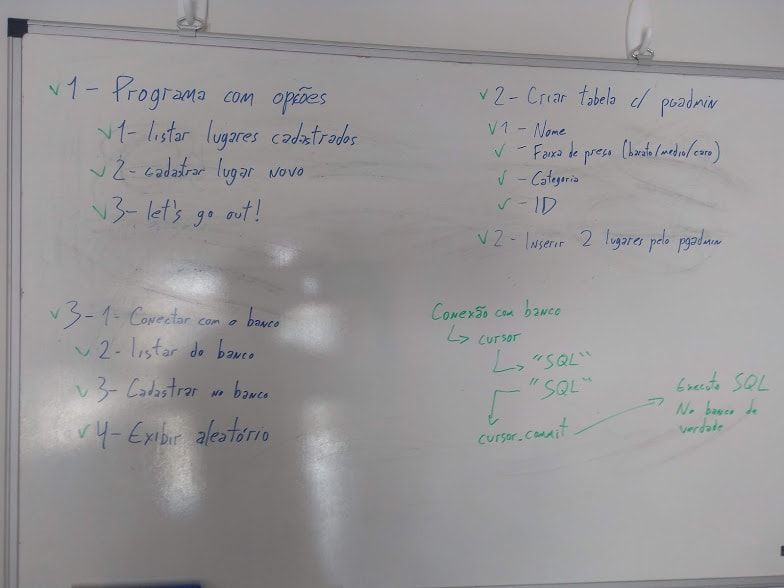 ✓ 1 - Programa com opções
✓ 1- listar lugares cadastrados
✓ 2- cadastrar lugar novo
✓ 3- let's go out!
✓ 2 - Criar tabela c/ pgadmin
✓ 1 - Nome
✓ - Faixa de preso (barato/medio/caro)
✓ - Categoria
✓ - ID
✓ 2 - Inserir 2 lugares pelo pgadmin
✓ 3- 1- Conectar com o banco
✓ 2- listar do banco
✓ 3- Cadastrar no banco
✓ 4- Exibir aleatório
Conexão com banco
↳ cursor
↳ "SQL"
"SQL"
cursor_commit
Executa SQL
No banco de
verdade